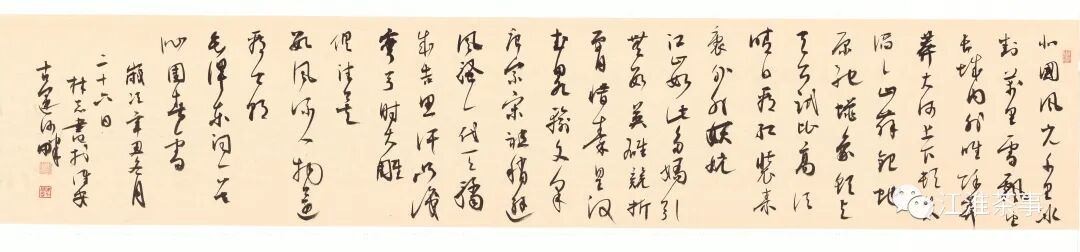 北國風光千里冰
封萬里雪飄望
長城内外唯餘莽
莽大河上下頓失
滔滔山舞銀蛇
原馳蠟象欲與
天公試比高須
晴日看紅裝素
裹分外妖嬈
江山如此多嬌引
無數英雄競折
腰惜秦皇漢
武略輸文采
唐宗宋祖稍遜
風騷一代天驕
成吉思汗只識
彎弓射大雕
俱往矣
數風流人物還
看今朝
毛澤東詞一首
沁園春雪
歲次辛丑冬月
二十六日
書於淮安
古運河畔
江淮茶事